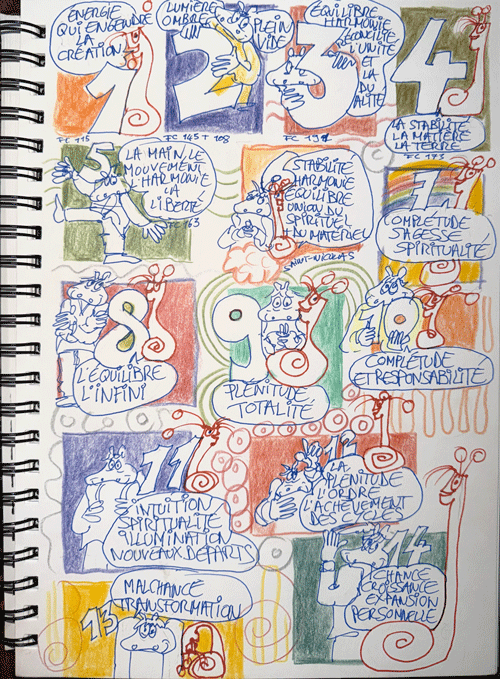 ÉNERGIE
QUI ENGENDRE
LA
CRÉATION
1
FC 115
LUMIÈRE
OMBRE
PLEIN
VIDE
2
FC 145 + 108
ÉQUILIBRE
HARMONIE
RÉCONCILIE
L'UNITÉ
ET
LA
DU
ALITÉ
3
4
LA STABILITÉ
LA MATIÈRE
LA TERRE
FC 173
5
LA MAIN, LE
MOUVEMENT
L'HARMONIE
LA
LIBERTÉ
163
STABILITÉ
HARMONIE
ÉQUILIBRE
UNION DU
SPIRITUEL
+ DU MATÉRIEL
SAINT-NICOLAS
7
COMPLÉTUDE
SAGESSE
SPIRITUALITÉ
8
L'ÉQUILIBRE
L'INFINI
9
PLÉNITUDE
TOTALITÉ
10
COMPLÉTUDE
ET RESPONSABILITÉ
11
INTUITION
SPIRITUALITÉ
ILLUMINATION
NOUVEAUX DÉPARTS
12
LA
PLÉNITUDE
L'ORDRE
L'ACHÈVEMENT
DES CYCLES
13
MALCHANCE
TRANSFORMATION
14
CHANCE
CROISSANCE
EXPANSION
PERSONNELLE